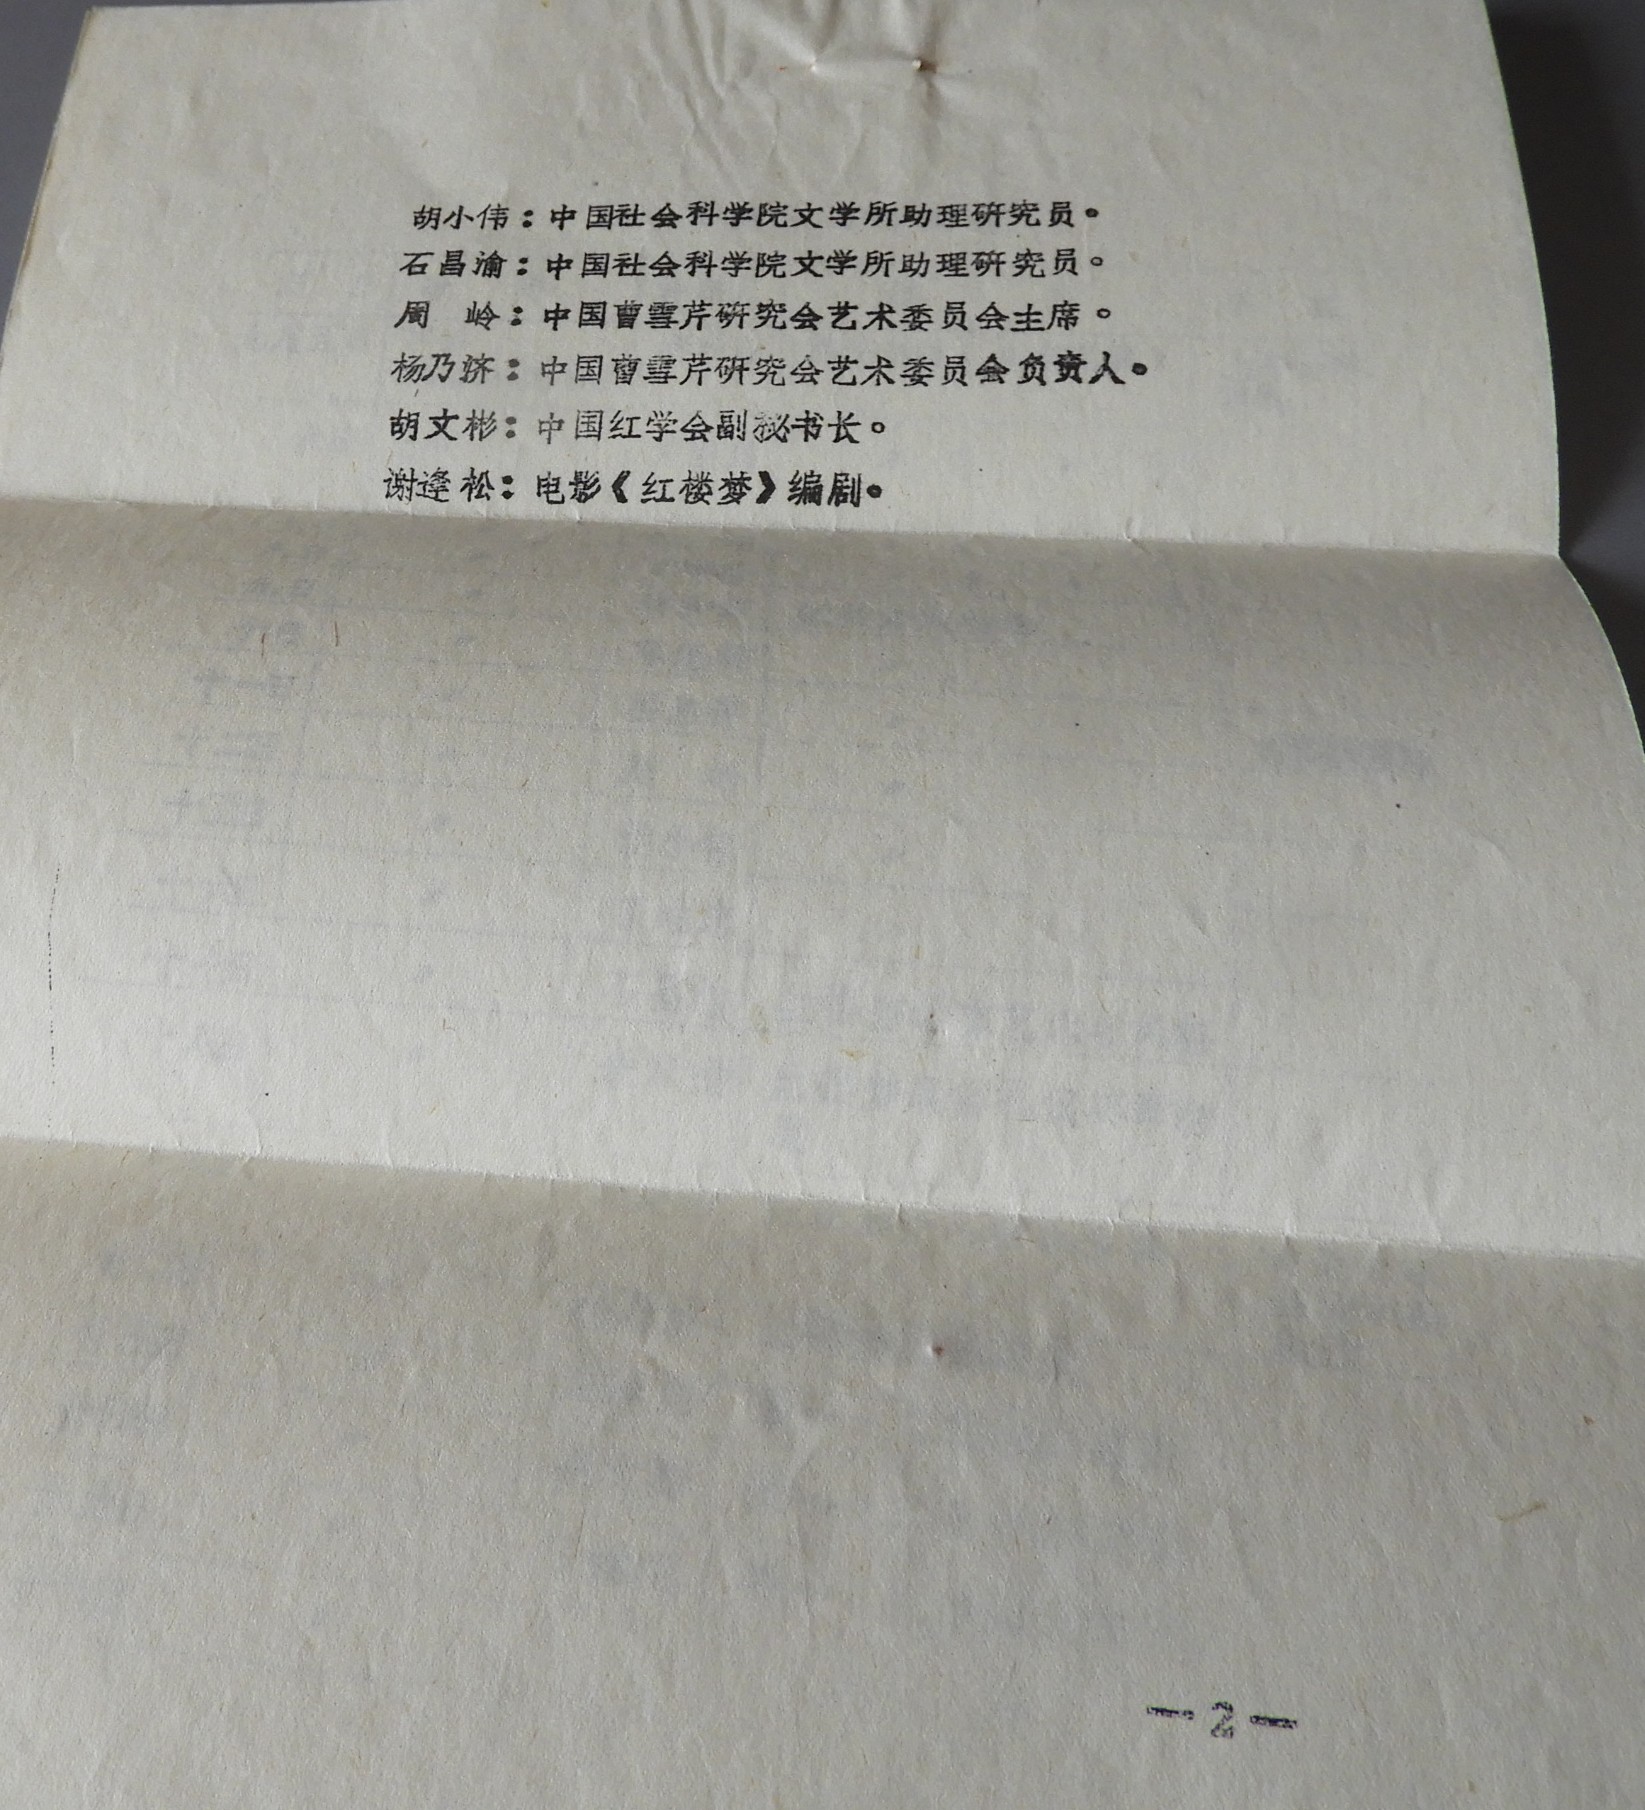 胡小伟：中国社会科学院文学所助理研究员。
石昌渝：中国社会科学院文学所助理研究员。
周　岭：中国曹雪芹研究会艺术委员会主席。
杨乃济：中国曹雪芹研究会艺术委员会负责人。
胡文彬：中国红学会副秘书长。
谢逢松：电影《红楼梦》编剧。
—2—